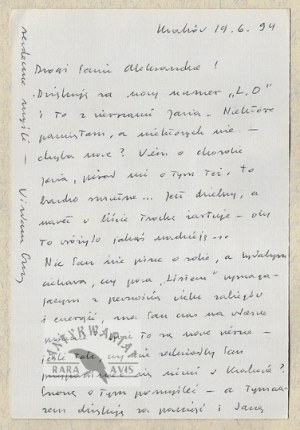 Kraków 19.6.94
Drogi Panie Aleksandrze!
Dziękuję za nowy numer „L.O"
i to z wierszami Jana. Niektóre
pamiętam, a niektórych nie –
chyba nowe? Wiem o chorobie
Jana, pisał mi o tym też. to
bardzo smutne... Jest dzielny, a
nawet w liście trochę żartuje – oby
to wróżyło jakąś nadzieję...
Nic Pan nie pisze o sobie, a byłabym
ciekawa, czy poza „Listem" wymaga-
jącym z pewnością wielu zabiegów
i energii, ma Pan czas na własne
to na nowe wiersze –
jeśli tak, czy nie
w Krakowie?
Proszę o tym pomyśleć – a tymcza-
sem dziękuję za pamięć i łączę
serdeczne myśli –
ANTYKWARIAT
RARA AVIS